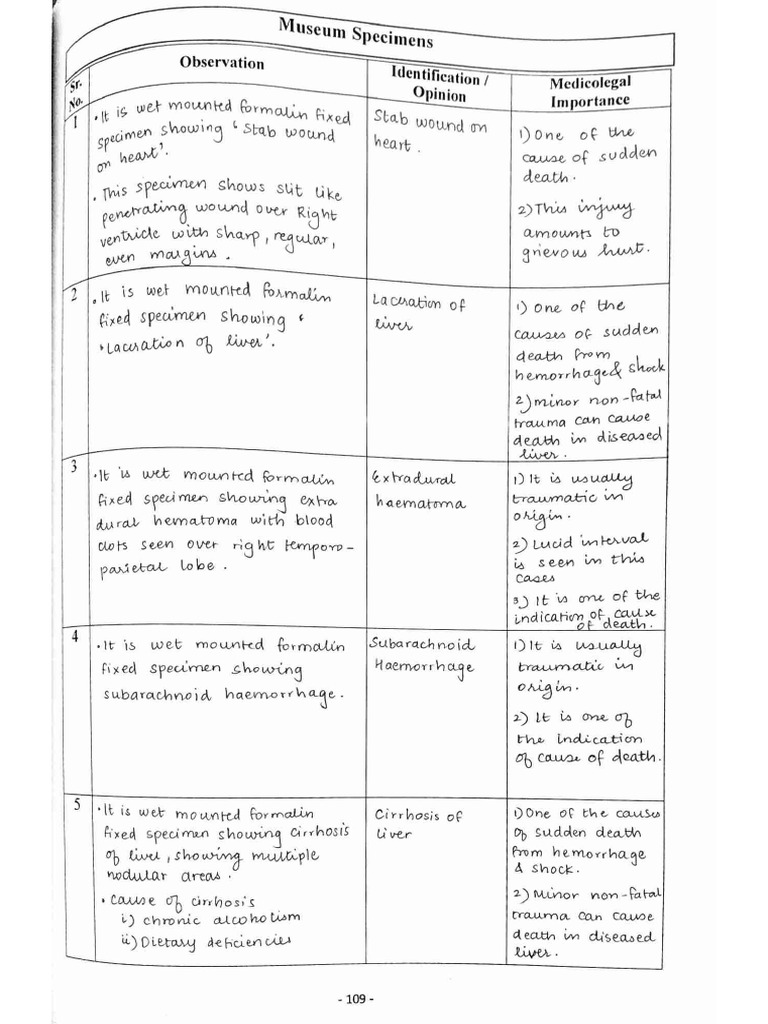 Museum Specimens
Sr. No.
Observation
Identification / Opinion
Medicolegal Importance
1
• It is wet mounted formalin fixed
specimen showing ‘Stab wound
on heart’.
• This specimen shows slit like
penetrating wound over Right
ventricle with sharp, regular,
even margins.
Stab wound on
heart.
1) One of the
cause of sudden
death.
2) This injury
amounts to
grievous hurt.
2
• It is wet mounted formalin
fixed specimen showing ‘
‘Laceration of liver’.
Laceration of
liver
1) One of the
causes of sudden
death from
hemorrhage & shock
2) minor non-fatal
trauma can cause
death in diseased
liver.
3
• It is wet mounted formalin
fixed specimen showing extra
dural hematoma with blood
clots seen over right temporo-
parietal lobe.
Extradural
haematoma
1) It is usually
traumatic in
origin.
2) Lucid interval
is seen in this
cases
3) It is one of the
indication of cause
of death.
4
• It is wet mounted formalin
fixed specimen showing
subarachnoid haemorrhage.
Subarachnoid
Haemorrhage
1) It is usually
traumatic in
origin.
2) It is one of
the indication
of cause of death.
5
• It is wet mounted formalin
fixed specimen showing cirrhosis
of liver, showing multiple
nodular areas.
• Cause of cirrhosis
i) chronic alcoholism
ii) Dietary deficiencies
Cirrhosis of
liver
1) One of the causes
of sudden death
from hemorrhage
& shock.
2) Minor non-fatal
trauma can cause
death in diseased
liver.
- 109 -